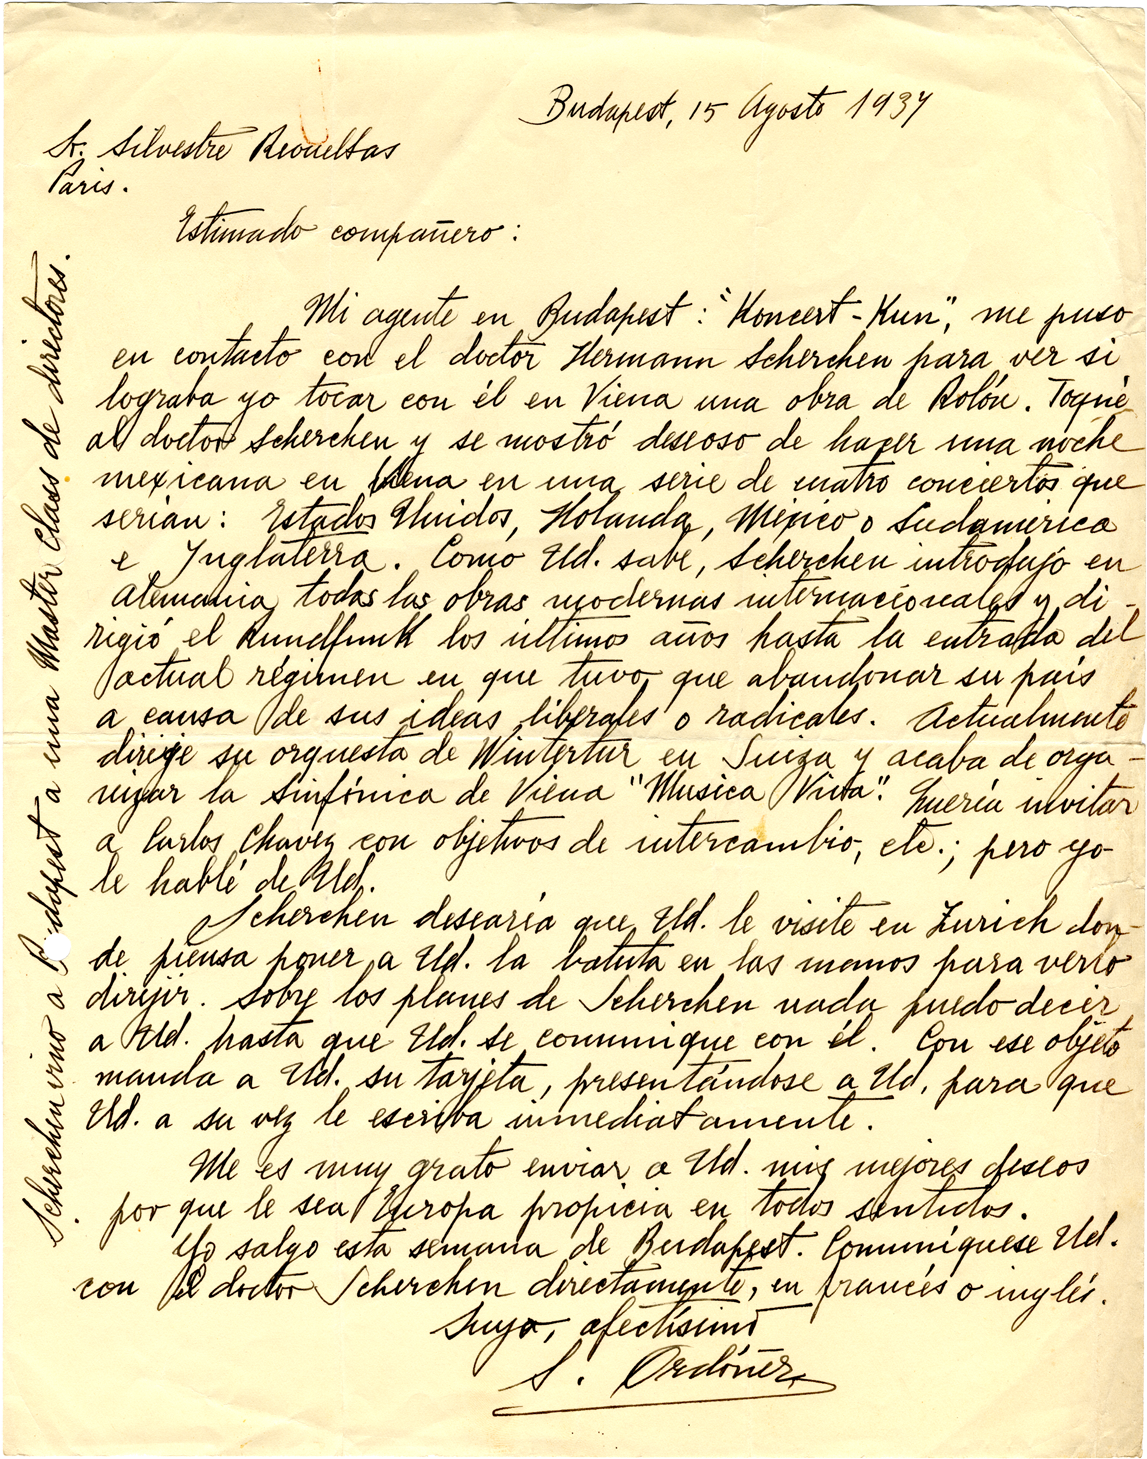 Budapest, 15 Agosto 1937
Sr. Silvestre Revueltas
Paris.
Estimado compañero:
Mi agente en Budapest: "Koncert-Kun", me puso
en contacto con el doctor Hermann Scherchen para ver si
lograba yo tocar con él en Viena una obra de Rolón. Toqué
al doctor Scherchen y se mostró deseoso de hacer una noche
mexicana en Viena en una serie de cuatro conciertos que
serian: Estados Unidos, Holanda, México o Sudamerica
e Inglaterra. Como Ud. sabe, Scherchen introdujo en
Alemania todas las obras modernas internacionales y di-
rigió el Rundfunk los últimos años hasta la entrada del
actual régimen en que tuvo que abandonar su país
a causa de sus ideas liberales o radicales. Actualmente
dirige su orquesta de Wintertur en Suiza y acaba de orga-
nizar la Sinfónica de Viena "Musica Viva". Quería invitar
a Carlos Chavez con objetivos de intercambio, etc.; pero yo
le hablé de Ud.
Scherchen desearía que Ud. le visite en Zurich don-
de piensa poner a Ud. la batuta en las manos para verlo
dirijir. Sobre los planes de Scherchen nada puedo decir
a Ud. hasta que Ud. se comunique con él. Con ese objeto
manda a Ud. su tarjeta, presentándose a Ud. para que
Ud. a su vez le escriba inmediatamente.
Me es muy grato enviar a Ud. mis mejores deseos
por que le sea Europa propicia en todos sentidos.
Yo salgo esta semana de Budapest. Comuníquese Ud.
con el doctor Scherchen directamente, en francés o inglés.
Suyo, afectísimo
S. Ordóñez
Scherchen vino a Budapest a una Master Class de directores.